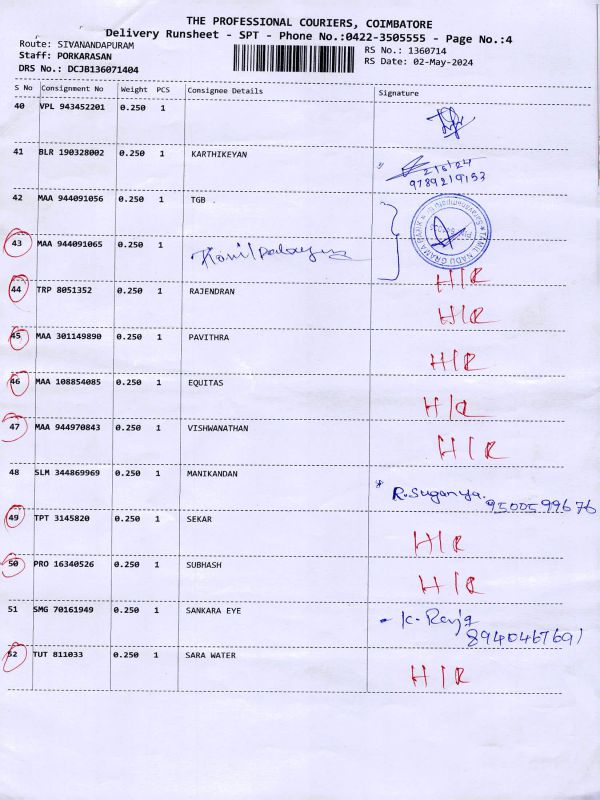 THE PROFESSIONAL COURIERS, COIMBATORE
Delivery Runsheet - SPT - Phone No.:0422-3505555 - Page No.:4
Route: SIVANANDAPURAM
RS No.: 1360714
Staff: PORKARASAN
RS Date: 02-May-2024
DRS No.: DCJB136071404
S No Consignment No Weight PCS Consignee Details Signature
40 VPL 943452201 0.250 1
41 BLR 190328002 0.250 1 KARTHIKEYAN 2/5/24
9789219153
42 MAA 944091056 0.250 1 TGB
TAMIL NADU GRAMA BANK
43 MAA 944091065 0.250 1
H/R
44 TRP 8051352 0.250 1 RAJENDRAN H/R
45 MAA 301149890 0.250 1 PAVITHRA H/R
46 MAA 108854085 0.250 1 EQUITAS H/R
47 MAA 944970843 0.250 1 VISHWANATHAN H/R
48 SLM 344869969 0.250 1 MANIKANDAN R. Suganya.
9500599676
49 TPT 3145820 0.250 1 SEKAR H/R
50 PRO 16340526 0.250 1 SUBHASH H/R
51 SMG 70161949 0.250 1 SANKARA EYE - K. Raja
8940467691
52 TUT 811033 0.250 1 SARA WATER H/R